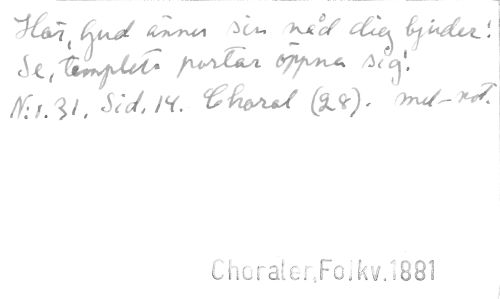 Hör, Gud ännu sin nåd dig bjuder!
Se, templets portar öppna sig!
N:r. 31. Sid. 14. Choral (28). mel-not.
Choraler, Folkv. 1881